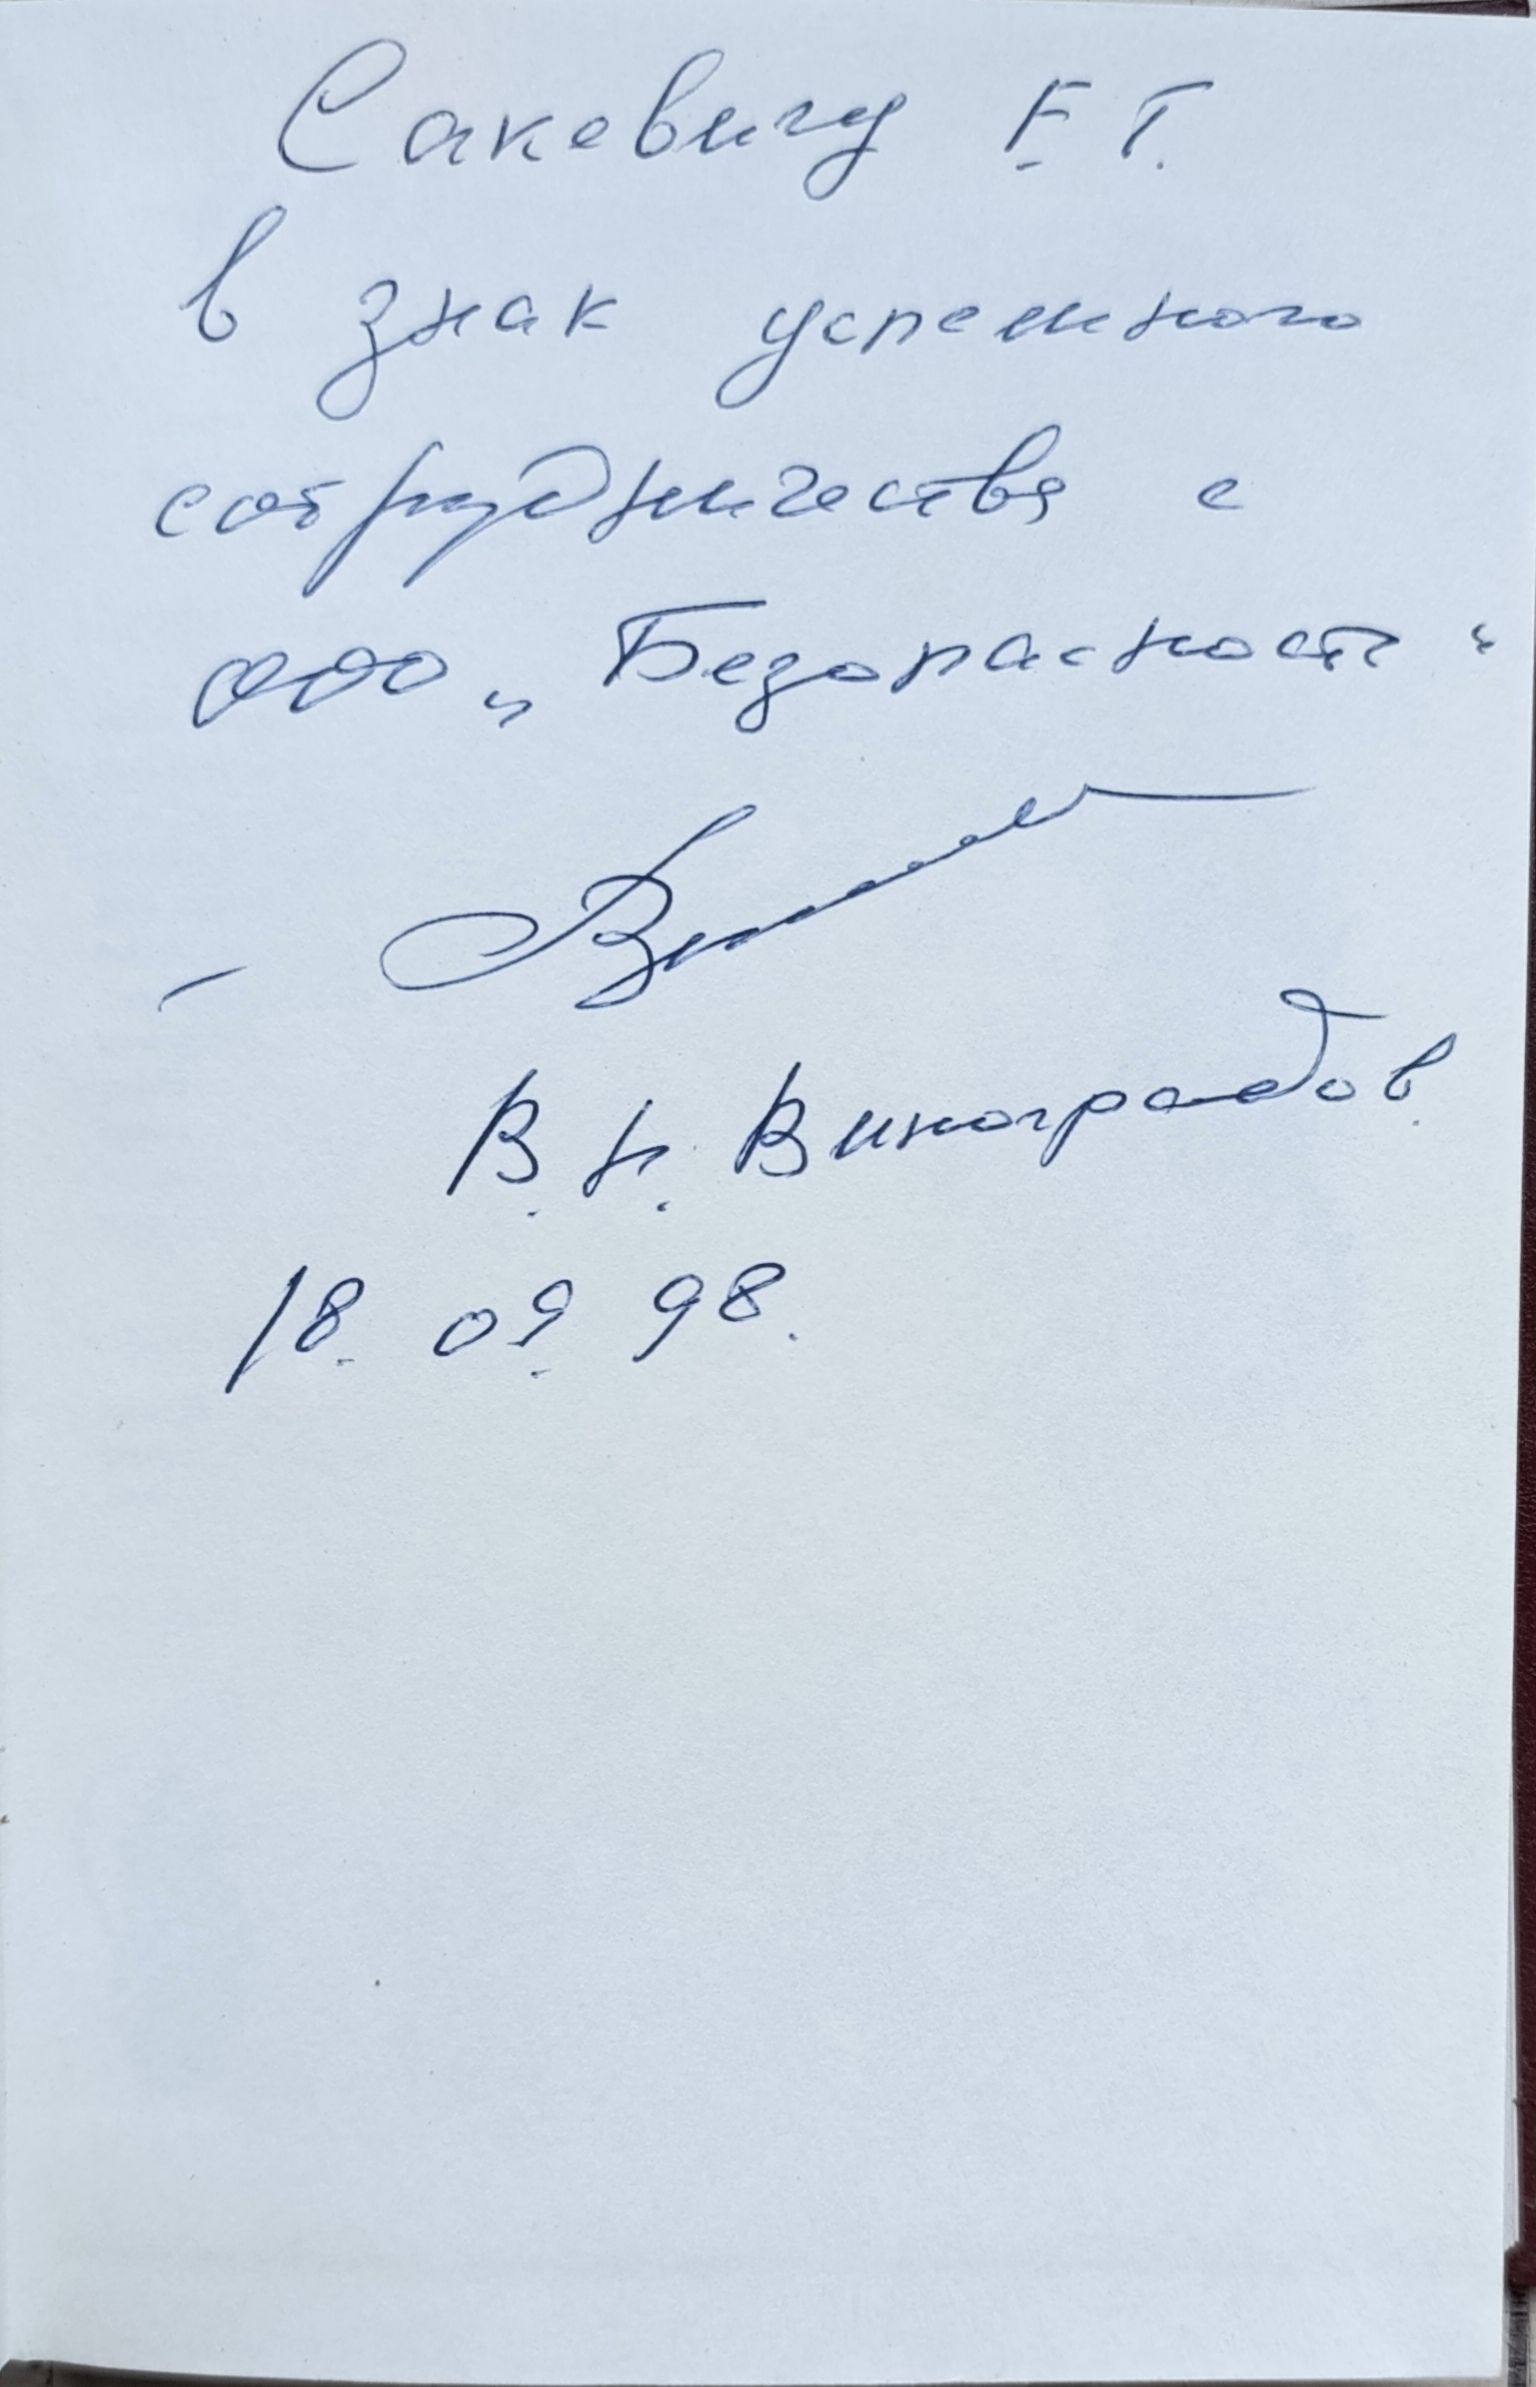 Сакевичу Е. Т.
в знак успешного
сотрудничества с
ООО „Безопасность"
В. Н. Виноградов
18. 09. 98.